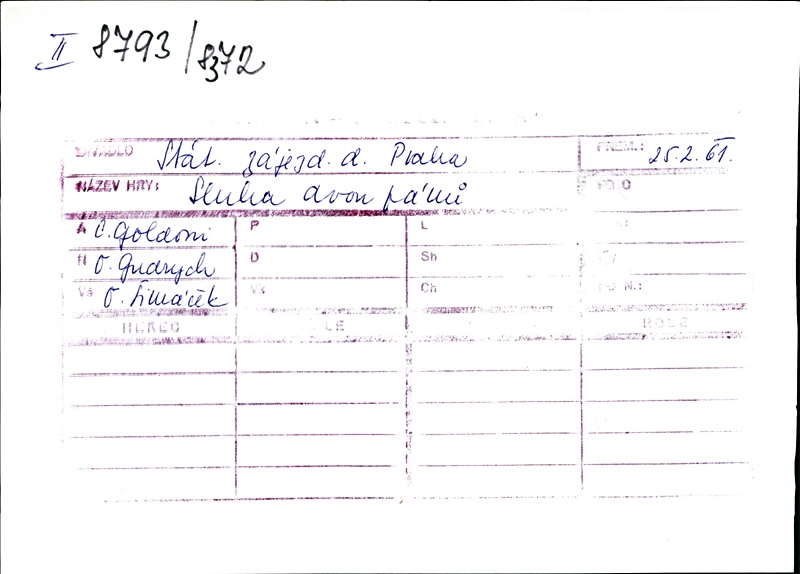 II 8793/8372
DIVADLO Stát. zájezd. d. Praha PREM.: 25.2.61.
NÁZEV HRY: Sluha dvou pánů
A C. Goldoni P L
R O. D Sh
Vs O. Šimáček Vs Ch
HEREC ROLE